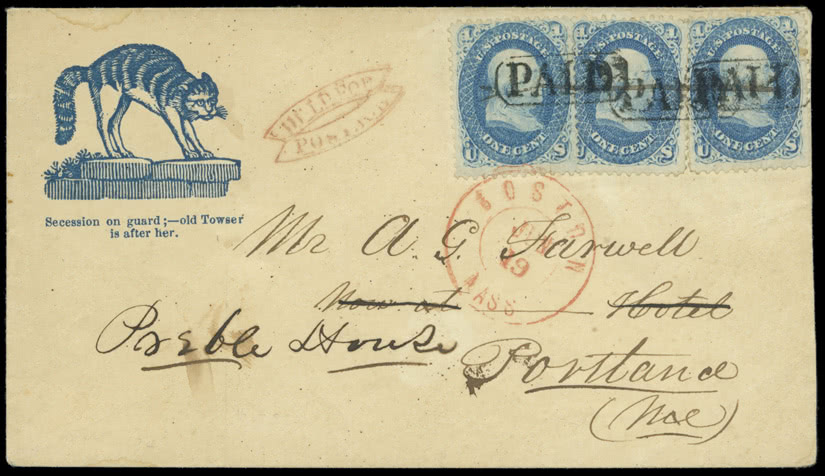 U.S. POSTAGE
U.S. POSTAGE
U.S. POSTAGE
1 1
1 1
1 1
PAID
PAID
PAID
ONE CENT
ONE CENT
ONE CENT
U S
U S
U S
Secession on guard;—old Towser
is after her.
BOSTON
19
MASS
Mr A. G. Farwell
Now at — Hotel
Preble House Portland
(Me)